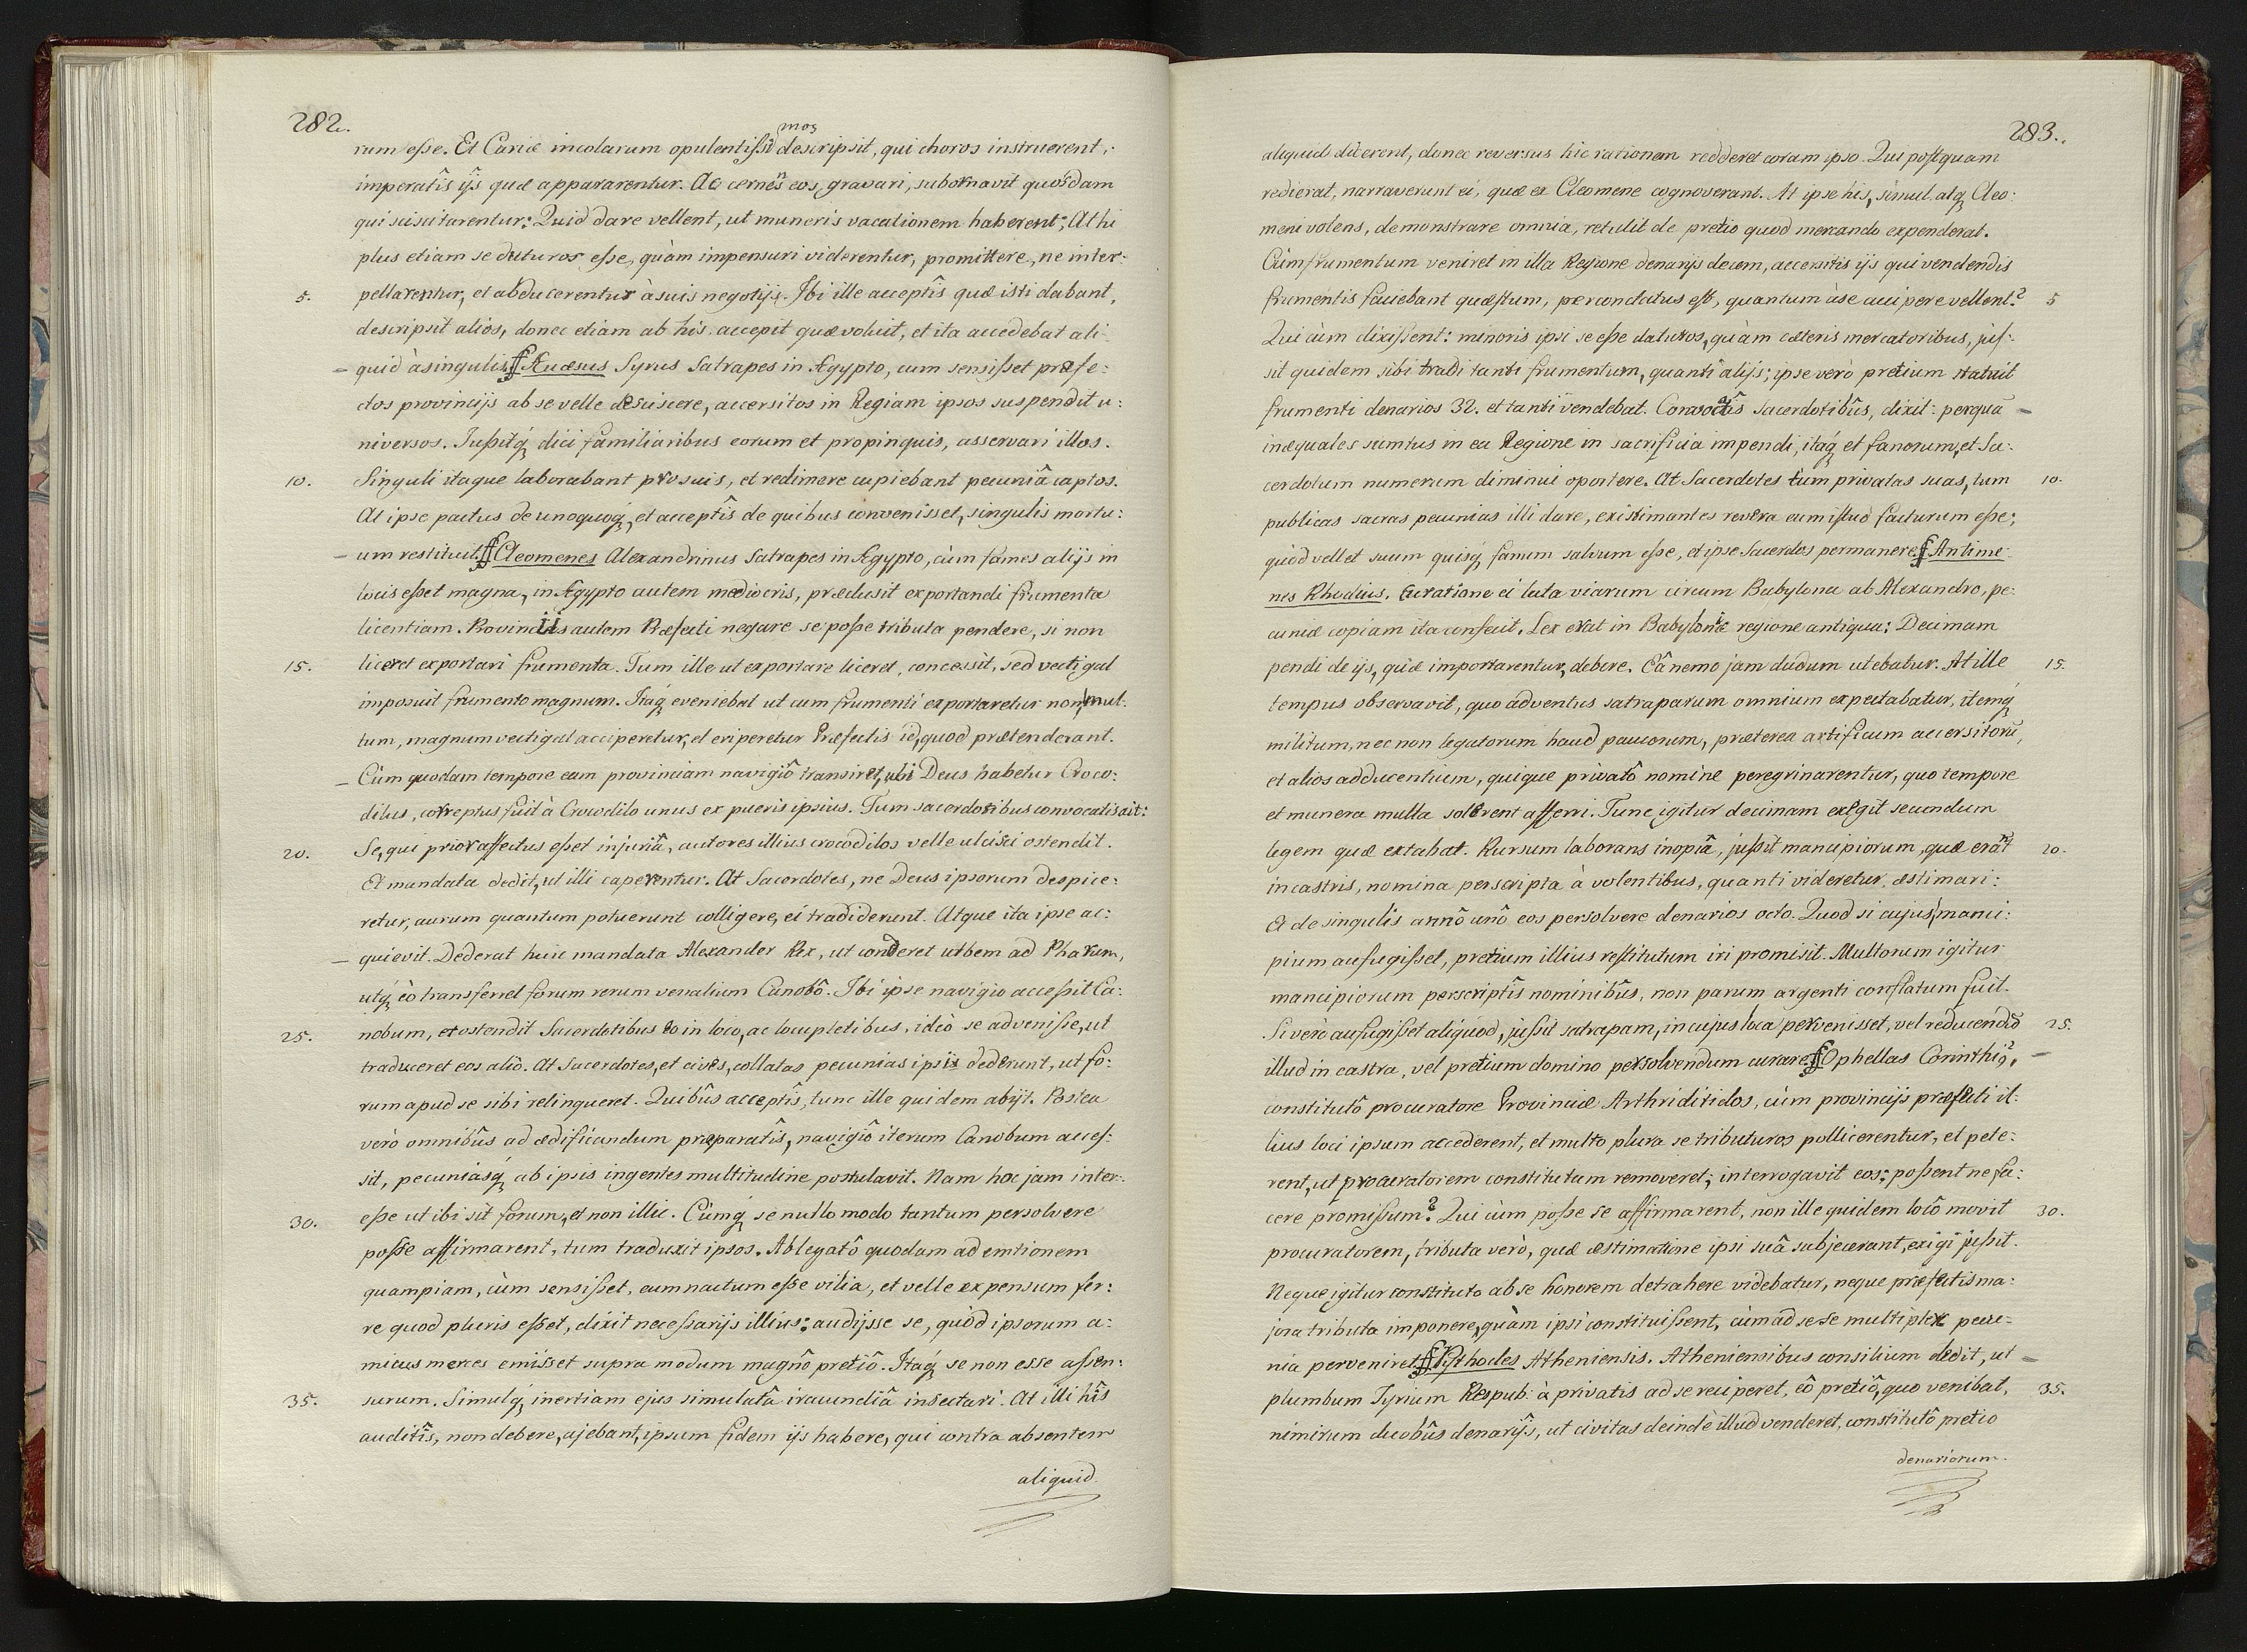 282.
rum esse. Et Cariæ incolarum opulentissimos descripsit, qui choros instruerent,
imperatîs ijs quæ appararentur. Ac cernēs eos gravari, subornavit quosdam
qui sciscitarentur: Quid dare vellent, ut muneris vacationem haberent; At hi
plus etiam se daturos esse, quàm impensuri viderentur, promittere, ne inter:
5. pellarentur, et abducerentur à suis negotijs. Ibi ille acceptîs quæ isti dabant,
descripsit alios, donec etiam ab his accepit quæ voluit, et ita accedebat ali:
– quid à singulis. ∬ Aucæsus Syrus Satrapes in Ægypto, cum sensisset præfe:
ctos provincijs ab se velle desciscere, accersitos in Regiam ipsos suspendit u:
niversos. Jussitq́ dici familiaribus eorum et propinquis, asservari illos.
10. Singuli itaque laborabant pro suis, et redimere cupiebant pecuniâ captos.
At ipse pactus de unoquoq, et acceptîs de quibus convenisset, singulis mortu:
– um restituit. ∬ Cleomenes Alexandrinus Satrapes in Ægypto, cùm fames alijs in
locis esset magna, in Ægypto autem mediocris, præclusit exportandi frumenta
licentiam. Provinciis autem Præfecti negare se posse tributa pendere, si non
15. liceret exportari frumenta. Tum ille ut exportare liceret, concessit, sed vectigal
imposuit frumento magnum. Itaq eveniebat ut cum frumenti exportaretur non mul:
tum, magnum vectigal acciperetur, et eriperetur Præfectis id, quod prætenderant.
– Cùm quodam tempore eam provinciam navigiô transiret, ubi Deus habetur Croco:
dilus, correptus fuit à Crocodilo unus ex pueris ipsius. Tum sacerdotibus convocatis ait:
20. Se, qui prior affectus esset injuriâ, autores illius crocodilos velle ulcisci ostendit.
Et mandata dedit, ut illi caperentur. At Sacerdotes, ne Deus ipsorum despice:
retur, aurum quantum potuerunt colligere, ei tradiderunt. Atque ita ipse ac:
– quievit. Dederat huic mandata Alexander Rex, ut conderet urbem ad Pharum,
utq́ eò transferret forum rerum venalium Canobô. Ibi ipse navigio accessit Ca:
25. nobum, et ostendit Sacerdotibus eo in loco, ac locupletibus, ideò se advenisse, ut
traduceret eos aliò. At Sacerdotes, et cives, collatas pecunias ipsis dederunt, ut fo:
rum apud se sibi relinqueret. Quibûs acceptîs, tunc ille quidem abijt. Postea
verò omnibûs ad ædificandum præparatîs, navigiô iterum Canobum acces:
sit, pecuniasq́ ab ipsis ingentes multitudine postulavit. Nam hoc jam inter:
30. esse ut ibi sit forum, et non illic. Cùmq́ se nullo modo tantum persolvere
posse affirmarent, tum traduxit ipsos. Ablegatô quodam ad emtionem
quampiam, cùm sensisset, eum nactum esse vilia, et velle expensum fer:
re quod pluris esset, dixit necessarijs illius: audijsse se, quòd ipsorum a:
micus merces emisset supra modum magnô pretiô. Itaq́ se non esse assen:
35. surum. Simulq́ inertiam ejus simulatâ iracundiâ insectari. At illi hîs
auditîs, non debere, ajebant, ipsum fidem ijs habere, qui contra absentem
aliquid
283.
aliquid dicerent, donec reversus hic rationem redderet coram ipso. Qui postquam
redierat, narraverunt ei, quæ ex Cleomene cognoverant. At ipse his, simul atq Cleo:
meni volens, demonstrare omnia, retulit de pretio quod mercando expenderat.
Cùm frumentum veniret in illa Regione denarijs decem, accersitis ijs qui vendendis
frumentis faciebant quæstum, percondatus est, quantum à se accipere vellent? 5
Qui cùm dixissent: minoris ipsi se esse daturos, quàm cæteris mercatoribus, jus:
sit quidem sibi tradi tanti frumentum, quanti alijs; ipse verò pretium statuit
frumenti denarios 32. et tanti vendebat. Convocatîs Sacerdotibûs, dixit: perquā –
inæquales sumtus in ea Regione in sacrificia impendi, itaq́ et fanorum, et Sa:
cerdotum numerum diminui oportere. At Sacerdotes tum privatas suas, tum 10.
publicas sacras pecunias illi dare, existimantes revera eum istud facturum esse;
quòd vellet suum quisq́ fanum salvum esse, et ipse Sacerdos permanere. ∬ Antime:
nes Rhodius. Curatione ei lata viarum circum Babylona ab Alexandro, pe:
cuniæ copiam ita confecit. Lex erat in Babyloniæ regione antiqua: Decimam
pendi de ijs, quæ importarentur, debere. Eâ nemo jam dudum utebatur. At ille 15.
tempus observavit, quo adventus satraparum omnium expectabatur, itemq́
militum, nec non legatorum haud paucorum, præterea artificum accersitorū,
et alios adducentium, quique privatô nomine peregrinarentur, quo tempore
et munera multa solerent afferri. Tunc igitur decimam exegit secundum
legem quæ extabat. Rursum laborans inopiâ, jussit mancipiorum, quæ erāt 20.
in castris, nomina perscripta à volentibus, quanti videretur, æstimari:
Et de singulis annô unô eos persolvere denarios octo. Quod si cujus manci:
pium aufugisset, pretium illius restitutum iri promisit. Multorum igitur
mancipiorum perscriptîs nominibûs, non parum argenti conflatum fuit.
Si verò aufugisset aliquod, jussit satrapam, in cujus loca pervenisset, vel reducendū 25.
illud in castra, vel pretium domino persolvendum curare. ∬ Ophellas Corinthi9, –
constitutô procuratore Provinciæ Arthriditidos, cùm provincijs præfecti il:
lius loci ipsum accederent, et multo plura se tributuros pollicerentur, et pete:
rent, ut procuratorem constitutum removeret; interrogavit eos: possent ne fa:
cere promissum? Qui cùm posse se affirmarent, non ille quidem locô movit 30.
procuratorem, tributa verò, quæ æstimatione ipsi suâ subjecerant, exigi jussit.
Neque igitur constituto ab se honorem detrahere videbatur, neque præfectis ma:
jora tributa imponere, quàm ipsi constituissent, cùm ad sese multiplex pecu:
nia perveniret. ∬ Pythocles Atheniensis. Atheniensibus consilium dedit, ut –
plumbum Tyrium Respub: à privatis ad se reciperet, eô pretiô, quo venibat, 35.
nimirum duobûs denarijs, ut civitas deindè illud venderet, constitutô pretio
denariorum.